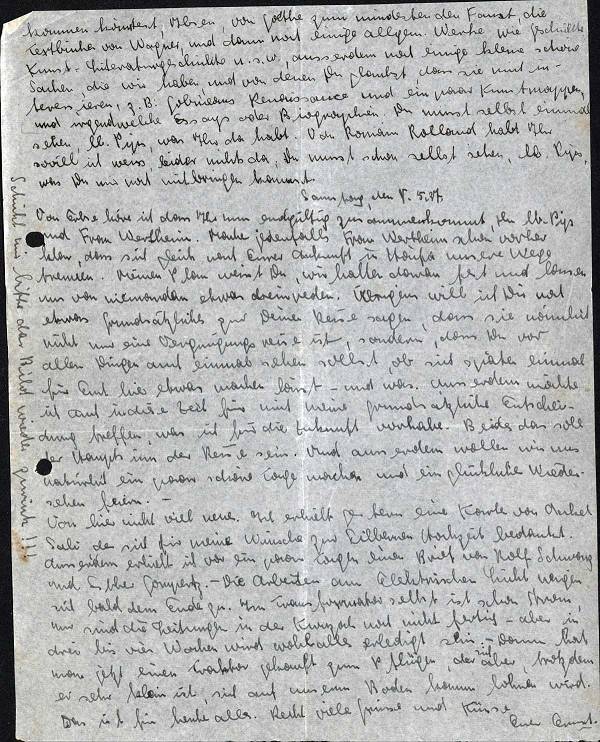 kommen könntest, Ibsen, von Goethe zum mindesten den Faust, die
Textbücher von Wagner, und dann noch einige allgem. Werke wie Geschichte
Kunst- Literaturgeschichte u.s.w., ausserdem noch einige kleine schöne
Sachen die wir haben und von denen Du glaubst, dass sie mich in-
teressieren, z.B. Gobineaus Renaissance und ein paar Kunstmappen,
und irgendwelche Essays oder Biographien. Du musst selbst einmal
sehen, lb. Pips, was Ihr da habt. Von Romain Rolland habt Ihr
soviel ich weiss leider nichts da, Du musst schon selbst sehen, lb. Pips,
was Du mir noch mitbringen kannst.
Samstag, den 8.5.37
Von Erbse höre ich dass Ihr nun endgültig zusammenkommt, Du lb. Pips
und Frau Wertheim. Mache jedenfalls Frau Wertheim schon vorher
klar, dass sich gleich nach Eurer Ankunft in Haifa unsere Wege
trennen. Meinen Plan weisst Du, wir halten daran fest und lassen
uns von niemandem etwas dreinreden. Übrigens will ich Dir noch
etwas grundsätzliches zu Deiner Reise sagen, dass sie nämlich
nicht nur eine Vergnügungsreise ist, sondern, dass Du vor
allen Dingen auch einmal sehen sollst, ob sich später einmal
für Euch hier etwas machen lässt - und was. Ausserdem möchte
ich auf indiese Zeit für mich meine grundsätzliche Entschei-
dung treffen, was ich für die Zukunft vorhabe. Beides das soll
der Hauptsinn der Reise sein. Und ausserdem wollen wir uns
natürlich ein paar schöne Tage machen und ein glückliches Wieder-
sehen feiern. -
Von hier nicht viel neues. Ich erhielt gestern eine Karte von Onkel
Sali der sich für meine Wünsche zur Silbernen Hochzeit bedankt.
Ausserdem erhielt ich vor ein paar Tagen einen Brief von Rolf Schwarz
und Esther Gompertz. - Die Arbeiten am Elektrischen Licht neigen
sich bald dem Ende zu. Im Transformator selbst ist schon Strom,
nur sind die Leitungen in der Kwuzah noch nicht fertig - aber in
drei bis vier Wochen wird wohl alles erledigt sein. - Dann hat
man jetzt einen Traktor gekauft zum Pflügen der sich aber, trotzdem
er sehr klein ist, sich auf unserm Boden kaum lohnen wird.
Das ist für heute alles. Recht viele Grüsse und Küsse
Euer Ernst.
Schickt mir bitte das Bild wieder zurück!!!